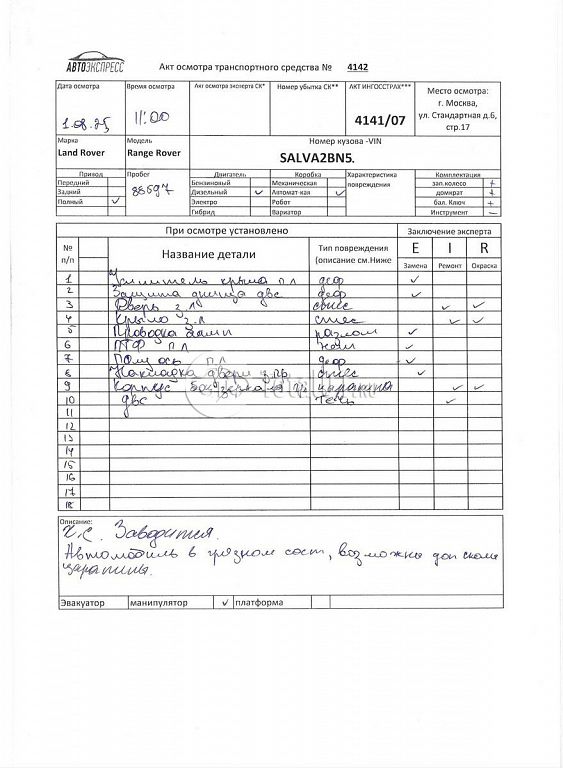 АВТОЭКСПРЕСС
Акт осмотра транспортного средства № 4142
Дата осмотра Время осмотра Акт осмотра эксперта СК* Номер убытка СК** АКТ ИНГОССТРАХ*** Место осмотра:
г. Москва,
ул. Стандартная д.6,
стр.17
1.08.25 11:00 4141/07
Марка Модель Номер кузова -VIN
Land Rover Range Rover SALVA2BN5.
Привод Пробег Двигатель Коробка Характеристика повреждения Комплектация
Передний 88597 Бензиновый Механическая зап.колесо +
Задний Дизельный ✓ Автомат-кая ✓ домкрат +
Полный ✓ Электро Робот бал. Ключ +
Гибрид Вариатор Инструмент –
При осмотре установлено Заключение эксперта
№ п/п Название детали Тип повреждения (описание см.Ниже E I R
Замена Ремонт Окраска
1 Усилитель крыла п л деф ✓
2 Защита днища двс деф ✓
3 Дверь з л ✓ ✓
4 Крыло з л ✓ ✓
5 Проводка разлом ✓
6 ПТФ п л ✓
7 п л деф ✓
8 Накладка двери з пр ✓
9 Корпус зеркала царапина ✓ ✓
10 двс течь ✓
11
12
13
14
15
16
17
18
Описание:
т.с. Заводится.
Автомобиль в грязном сост, возможны доп сколы
царапины.
Эвакуатор манипулятор ✓ платформа